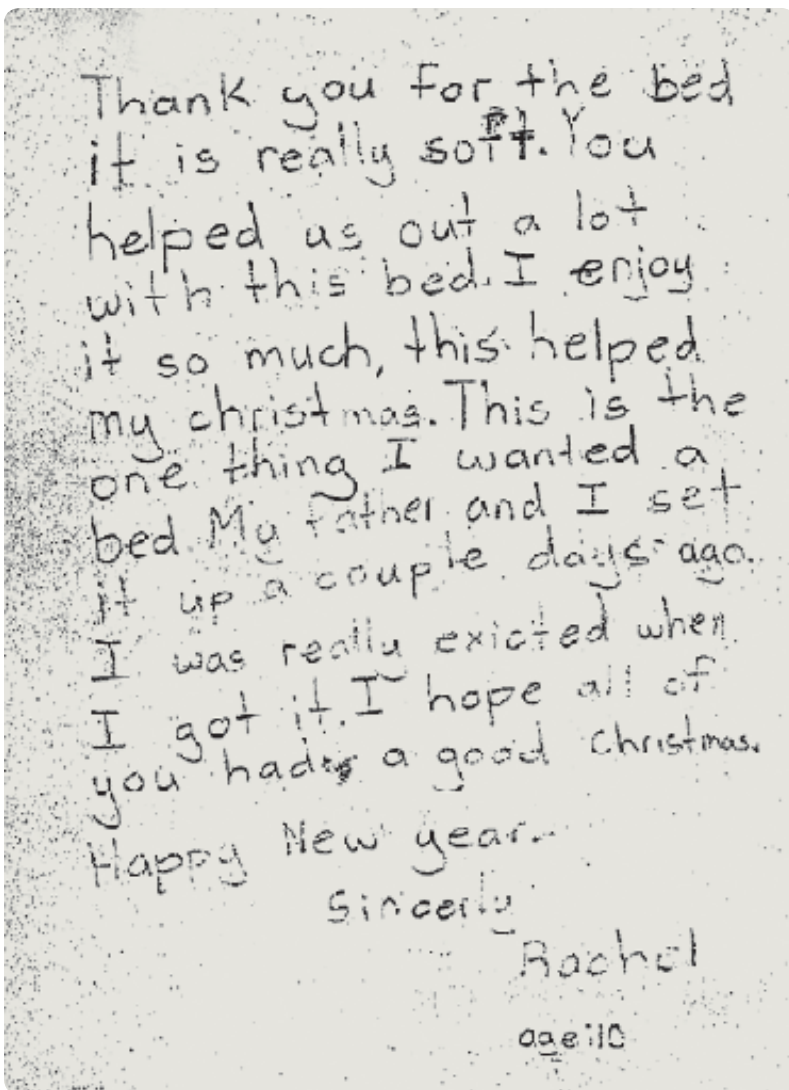 Thank you for the bed
it is really soft. You
helped us out a lot
with this bed. I enjoy
it so much, this helped
my christmas. This is the
one thing I wanted a
bed. My father and I set
it up a couple days ago.
I was really exicted when
I got it. I hope all of
you had a good christmas.
Happy New year.
Sincerly
Rachel
age:10